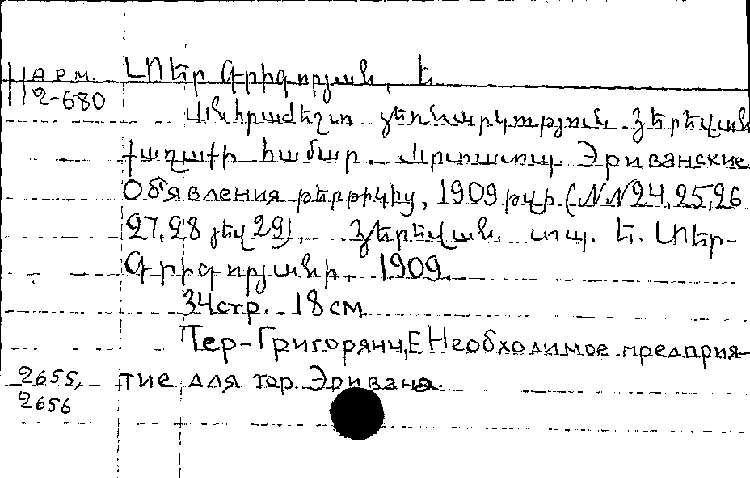 Տեր Գրիգորյան, Ե.
Арм.
2-680
Անհրաժեշտ ձեռնարկություն Յերեվան
քաղաքի համար. Արտատպ. Эриванские
Объявления թերթիկից, 1909 թվի (NN 24, 25, 26
27, 28 յեվ 29). Յերեվան, տպ. Ե. Տեր-
Գրիգորյանի, 1909.
34стр. 18см
Тер-Григорянц, Е Необходимое предприя-
тие для гор. Эривана.
2655,
2656